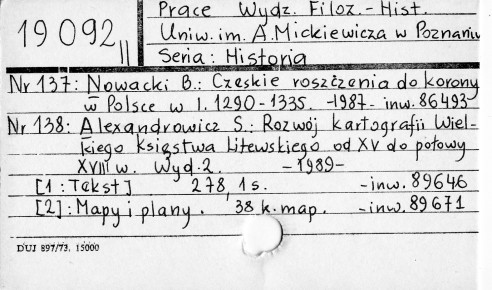 Prace Wydz. Filoz.-Hist.
19 092 II
Uniw. im. A. Mickiewicza w Poznaniu
Seria: Historia
Nr 137: Nowacki B.: Czeskie roszczenia do korony
w Polsce w l. 1290-1335. -1987- inw. 86493
Nr 138: Alexandrowicz S.: Rozwój kartografii Wiel-
kiego Księstwa Litewskiego od XV do połowy
XVIII w. Wyd. 2. -1989-
[1: Tekst] 278, 1 s. -inw. 89646
[2]: Mapy i plany. 38 k. map. -inw. 89671
DUJ 897/73. 15000